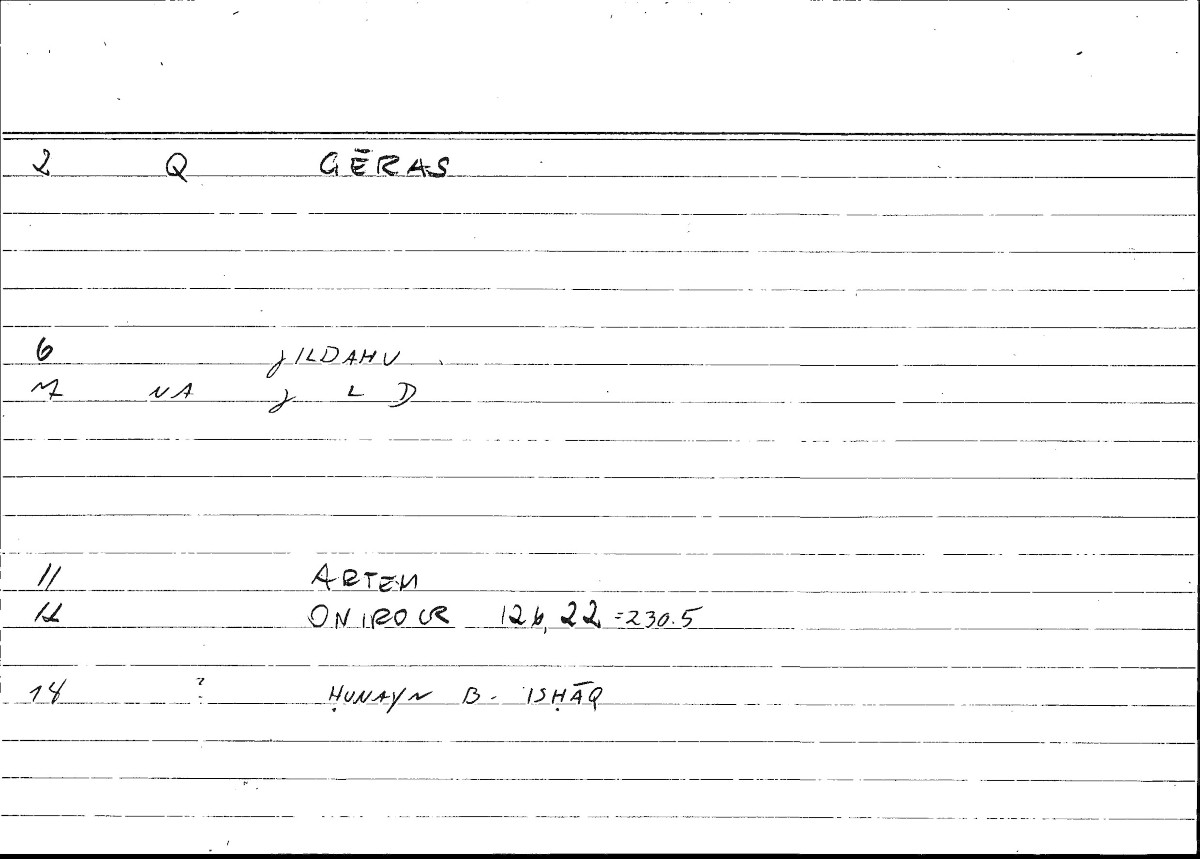 2 Q GĒRAS
6 JILDAHU
7 NA J L D
11 ARTEM
12 ONIROCR 126, 22 = 230.5
14 ? ḤUNAYN B. ISḤĀQ